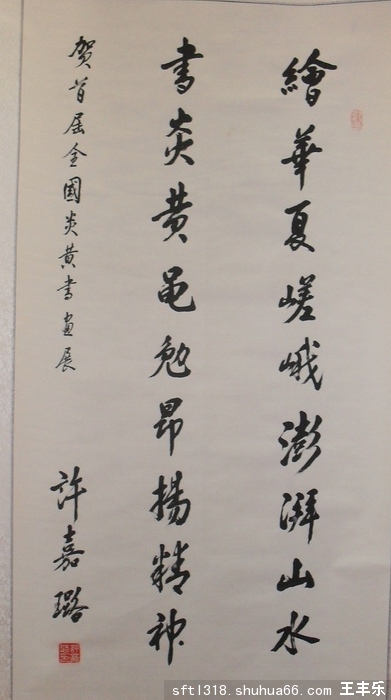 繪華夏嵯峨澎湃山水
書炎黄黾勉昂揚精神
贺首届全國炎黄书画展
許嘉璐
sftl318.shuhua66.com 王丰乐